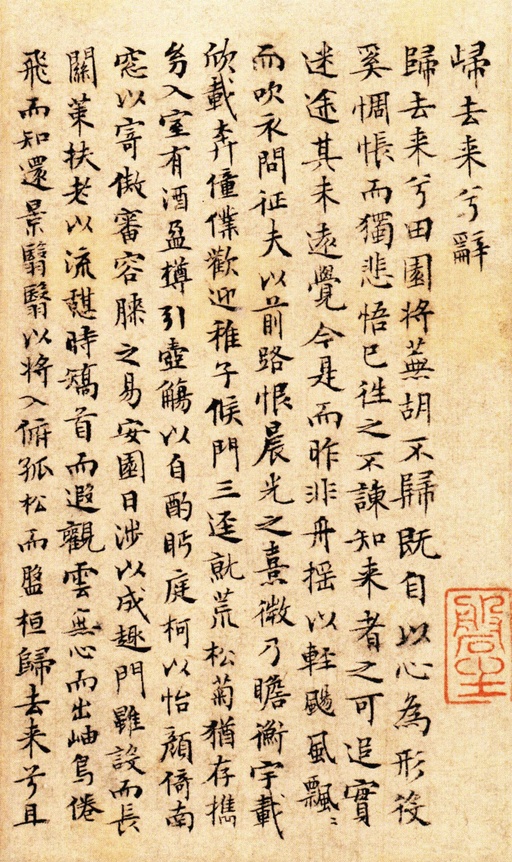 歸去来兮辭
歸去来兮田園将蕪胡不歸既自以心為形役
奚惆悵而獨悲悟已往之不諫知来者之可追實
迷途其未遠覺今是而昨非舟揺以軽颺風飄〻
而吹衣問征夫以前路恨晨光之熹微乃瞻衡宇載
欣載奔僮僕歡迎稚子候門三逕就荒松菊猶存攜
㓜入室有酒盈樽引壺觴以自酌眄庭柯以怡顔倚南
窓以寄傲審容膝之易安園日渉以成趣門雖設而長
關策扶老以流憩時矯首而遐觀雲無心而出岫鳥倦
飛而知還景翳翳以将入俯孤松而盤桓歸去来兮且